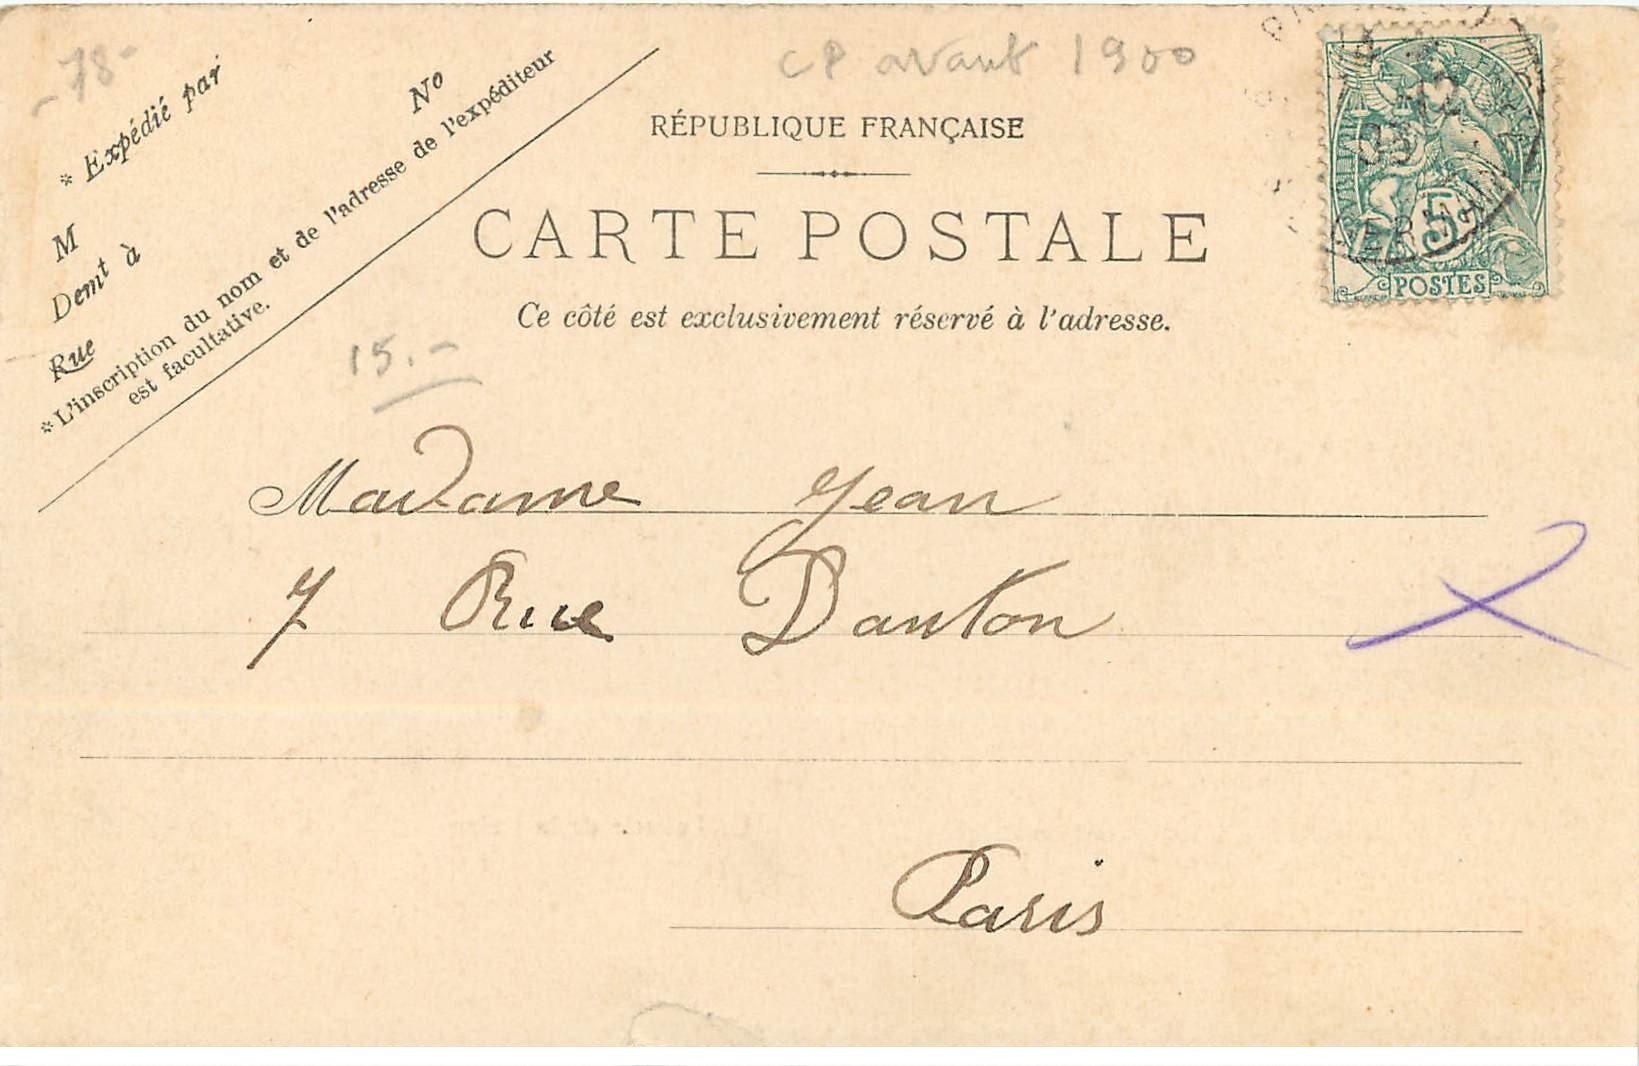 -78-
CP avant 1900
RÉPUBLIQUE FRANÇAISE
CARTE POSTALE
Ce côté est exclusivement réservé à l'adresse.
* Expédié par
M
Demt à
Rue
No
* L'inscription du nom et de l'adresse de l'expéditeur
est facultative.
15.-
5
POSTES
Madame Jean
7 Rue Danton
Paris